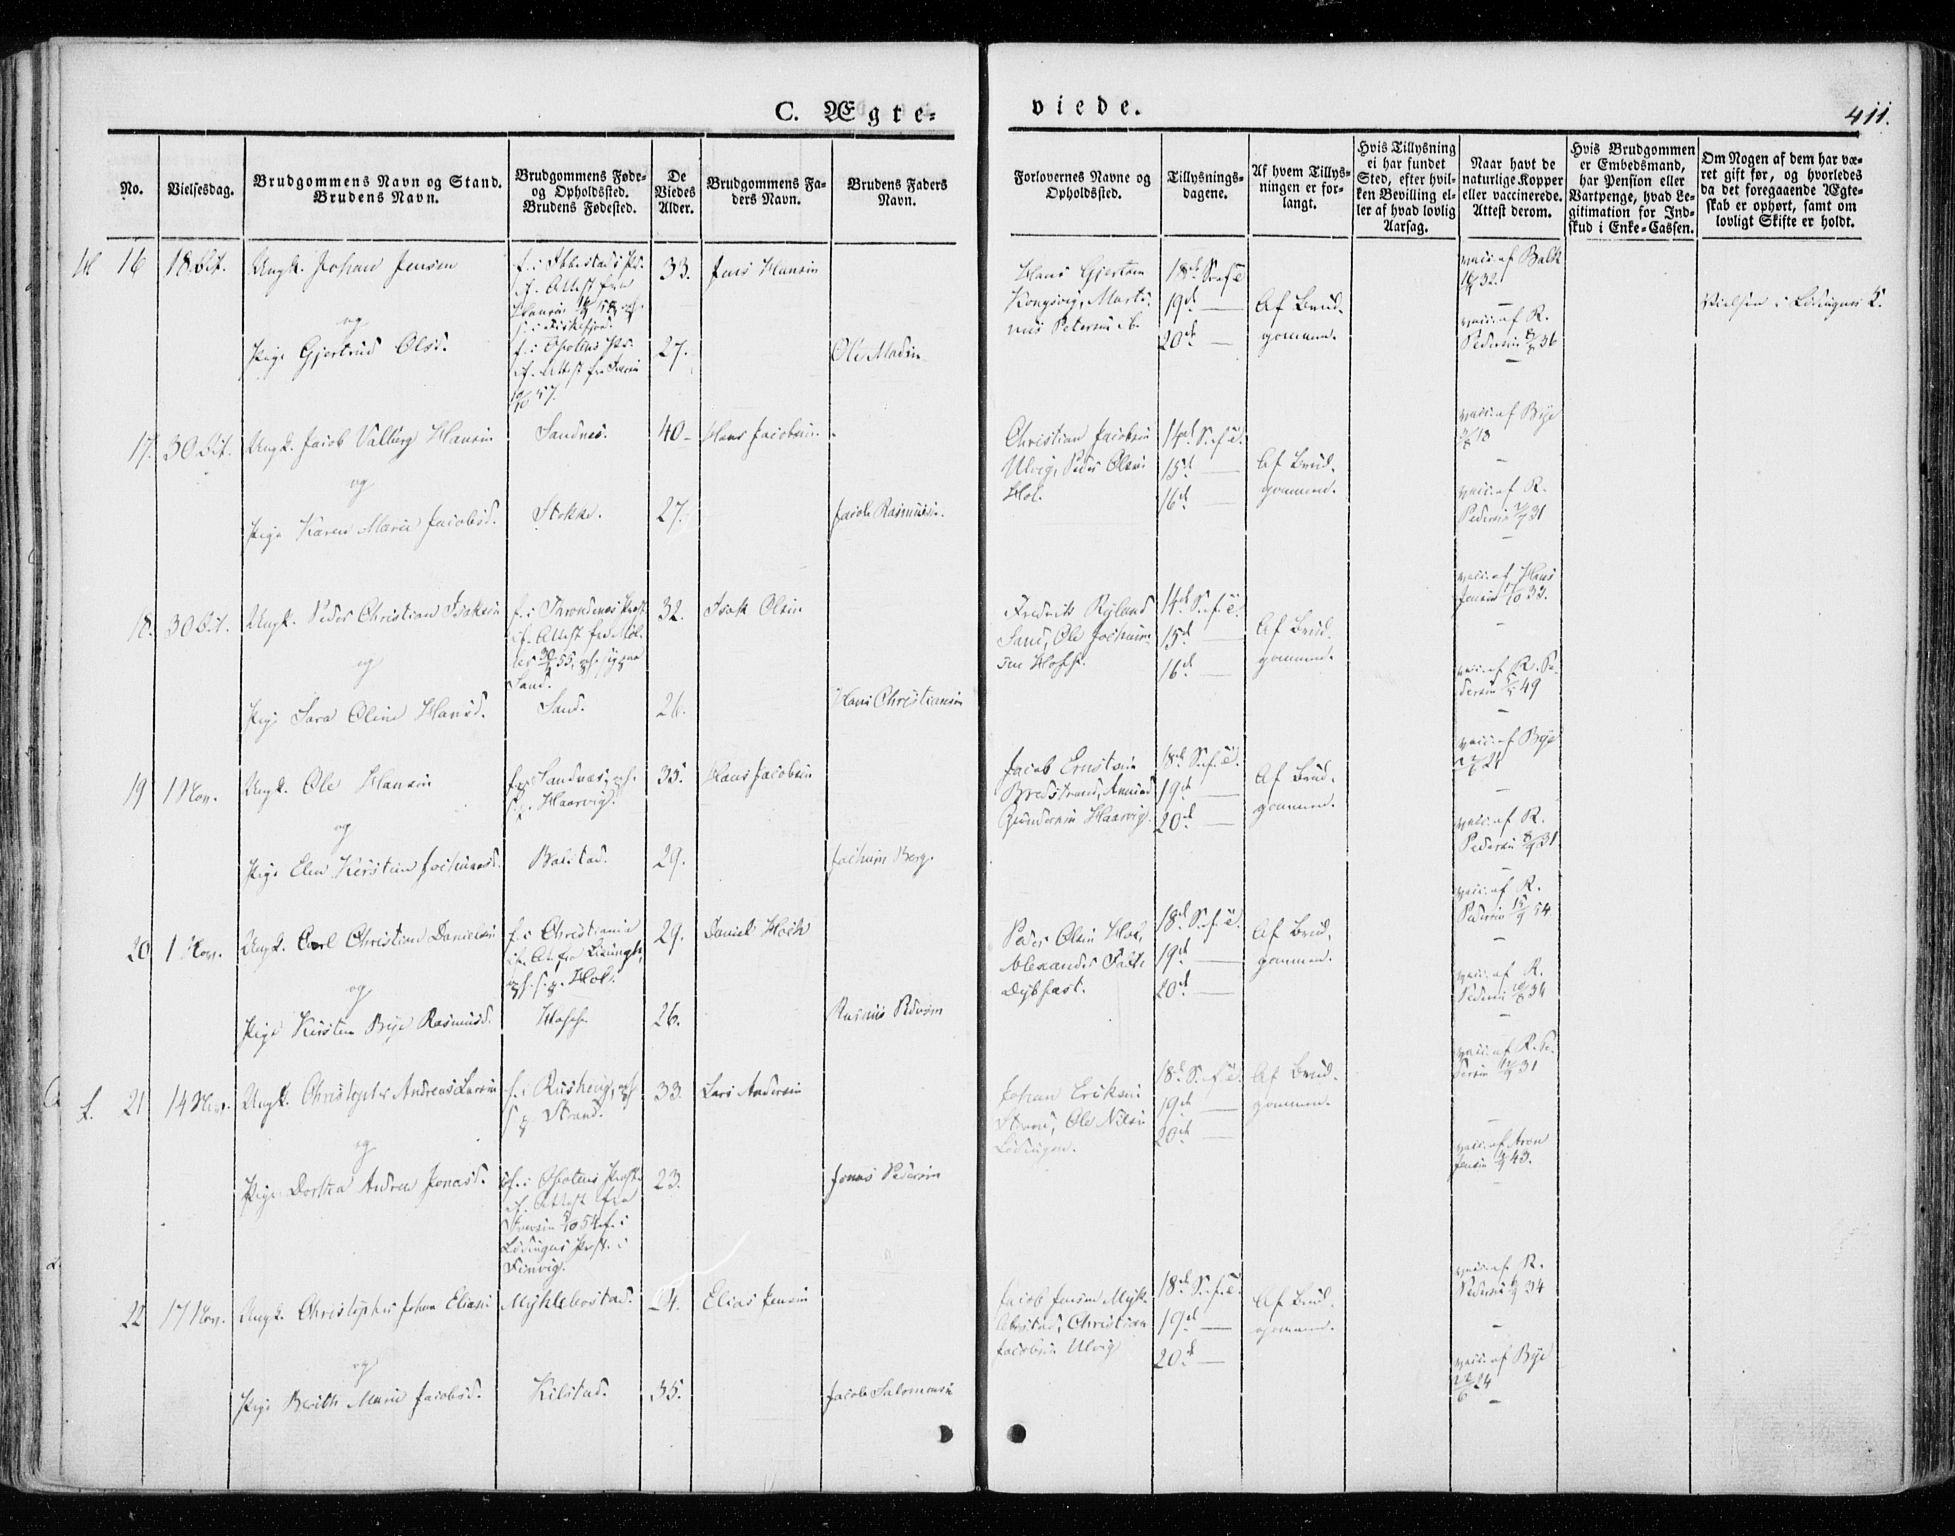 C. Ægte=
viede.
411.
No.
Vielsesdag.
Brudgommens Navn og Stand.
Brudens Navn.
Brudgommens Føde=
og Opholdssted.
Brudens Fødested.
De
Viedes
Alder.
Brudgommens Fa=
ders Navn.
Brudens Faders
Navn.
Forlovernes Navne og
Opholdssted.
Tillysnings=
dagene.
Af hvem Tillys=
ningen er for=
langt.
Hvis Tillysning
ei har fundet
Sted, efter hvil=
ken Bevilling el=
ler af hvad lovlig
Aarsag.
Naar havt de
naturlige Kopper
eller vaccinerede.
Attest derom.
Hvis Brudgommen
er Embedsmand,
har Pension eller
Vartpenge, hvad Le=
gitimation for Ind=
skud i Enke=Cassen.
Om Nogen af dem har væ=
ret gift før, og hvorledes
da det foregaaende Ægte=
skab er ophørt, samt om
lovligt Skifte er holdt.
16 18 Oct. Ungk. Johan Jensen
f. i Ibbestads Pr.
33. Jens Hansen
og
Pige Gjertrud Olsd.
f. i Ofotens Pr.
27. Ole Madsen
Hans Gjertsen
Kongsvig, Marti-
nus Petersen
18d S. e. f. e.
19d —
20d —
Af Brud-
gommen.
vacc. af Balk
vacc. af R.
Pedersen 36
Vielsen i Lødingens K.
17. 30 Oct. Ungk. Jacob Valberg Hansen
Sandnes.
40 Hans Jacobsen
og
Pige Karen Marie Jacobsd.
Stokke.
27. Jacob Rasmussen.
Christian Jacobsen
Ulvig, Peder Olsen
Hol.
14d S. e. f. e.
15d —
16d —
Af Brud-
gommen.
vacc. af Bye
13
vacc. af R.
Pedersen 31
18. 30 Oct. Ungk. Peder Christian Isaksen
f. i Throndenes Præst.
Sand.
32. Isak Olsen
og
Pige Sara Oline Hansd.
Sand.
26. Hans Christiansen
Fredrik Ryland
Sand, Ole Jochum-
sen Hofsh.
14d S. e. f. e.
15d —
16d —
Af Brud-
gommen.
vacc. af Hans
Jensen 33.
vacc. af R. Pe-
dersen 49
19 1 Nov. Ungk. Ole Hansen
Sandnæs,
Haarvig.
35. Hans Jacobsen
og
Pige Elen Kirstine Jochumsd.
Balstad.
29. Jochum Berg.
Jacob Ernstsen
Bredstrand, Amund
Gundersen Haarvig.
18d S. e. f. e.
19d —
20d —
Af Brud-
gommen.
vacc. af Bye
vacc. af R.
Pedersen 31
20 1 Nov. Ungk. Carl Christian Danielsen
f. i Christiania
Hol.
29. Daniel Hoch
og
Pige Kirsten Bye Rasmusd.
Hofsh.
26. Rasmus
Peder Olsen Hol,
Alexander Falch
Dybfæst.
18d S. e. f. e.
19d —
20d —
Af Brud-
gommen.
vacc. af R.
Pedersen 54
vacc. af R.
Pedersen 34
21 14 Nov. Ungk. Christopher Andreas Larsen
Strand.
33. Lars Andersen
og
Pige Dorthea Andrea Jonasd.
f. i Ofotens Præst.
Lødingens Præst. i
Finvig.
23. Jonas Pedersen
Johan Eriksen
Strand, Ole Nilsen
Lødingen.
18d S. e. f. e.
19d —
20d —
Af Brud-
gommen.
vacc. af R. Pe-
dersen 31
vacc. af Aron
Jensen 43.
22 17 Nov. Ungk. Christopher Johan Eliasen
Myklebostad.
24. Elias Jensen
og
Pige Berith Marie Jacobsd.
Kilstad.
35. Jacob Salomonsen
Jacob Jensen Myk-
lebostad, Christian
Jacobsen Ulvig
18d S. e. f. e.
19d —
20d —
Af Brud-
gommen.
vacc. af R.
Pedersen 34
vacc. af Bye
22/6 24